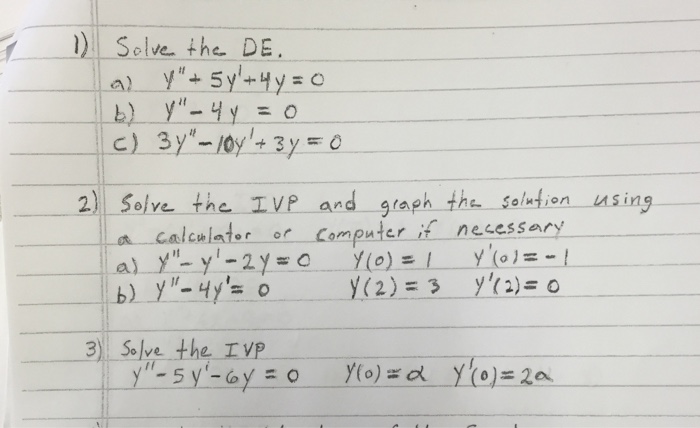 1) Solve the DE.
a) y"+5y'+4y=0
b) y"-4y = 0
c) 3y"-10y'+3y=0
2) Solve the IVP and graph the solution using
a calculator or computer if necessary
a) y"-y'-2y=0 y(0)=1 y'(0)=-1
b) y"-4y'=0 y(2)=3 y'(2)=0
3) Solve the IVP
y"-5y'-6y=0 y(0)=α y'(0)=2α